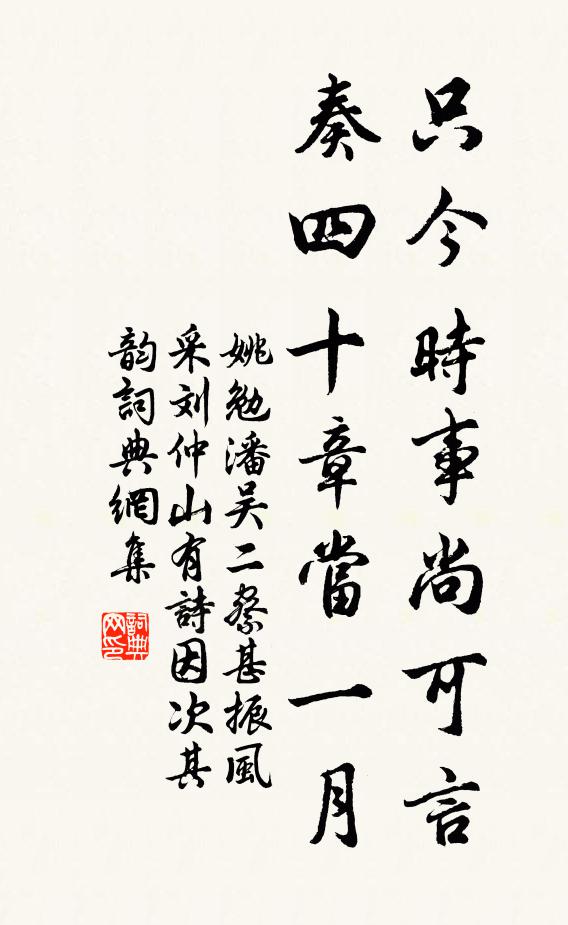 只今時事尚可言
奏四十章當一月
姚勉潘吴二察甚振風
采刘仲山有詩因次其
韵詞典網集
詞典
网印